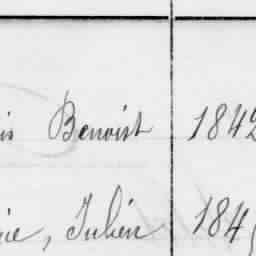 is Benoist 1842
ie, Julien 184